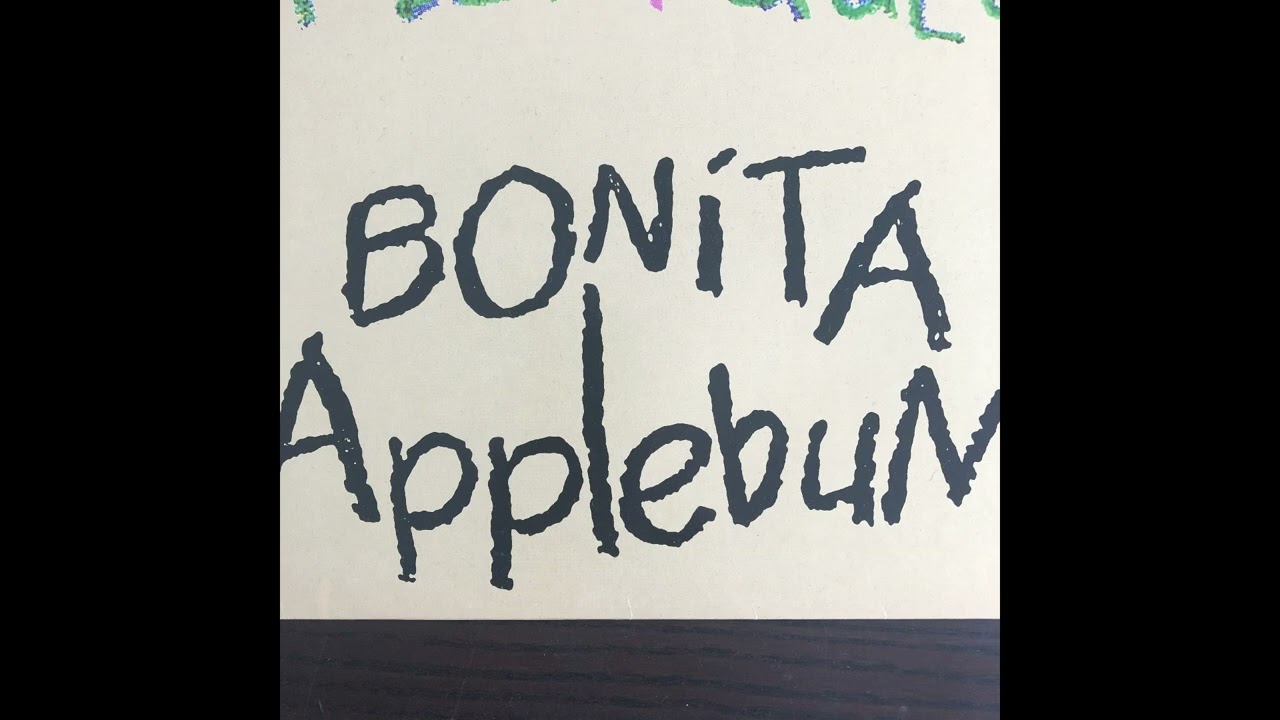 BONiTA
ApplebuM